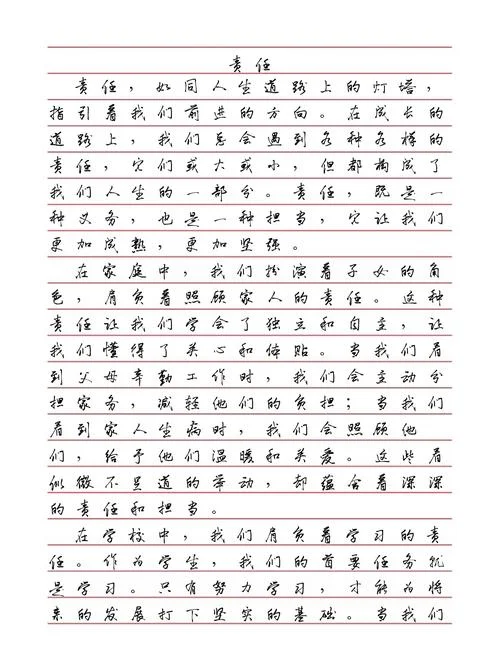 责任
责任，如同人生道路上的灯塔，
指引着我们前进的方向。在成长的
道路上，我们总会遇到各种各样的
责任，它们或大或小，但都构成了
我们人生的一部分。责任，既是一
种义务，也是一种担当，它让我们
更加成熟，更加坚强。
在家庭中，我们扮演着子女的角
色，肩负着照顾家人的责任。这种
责任让我们学会了独立和自主，让
我们懂得了关心和体贴。当我们看
到父母辛勤工作时，我们会主动分
担家务，减轻他们的负担；当我们
看到家人生病时，我们会照顾他
们，给予他们温暖和关爱。这些看
似微不足道的举动，却蕴含着深深
的责任和担当。
在学校中，我们肩负着学习的责
任。作为学生，我们的首要任务就
是学习。只有努力学习，才能为将
来的发展打下坚实的基础。当我们